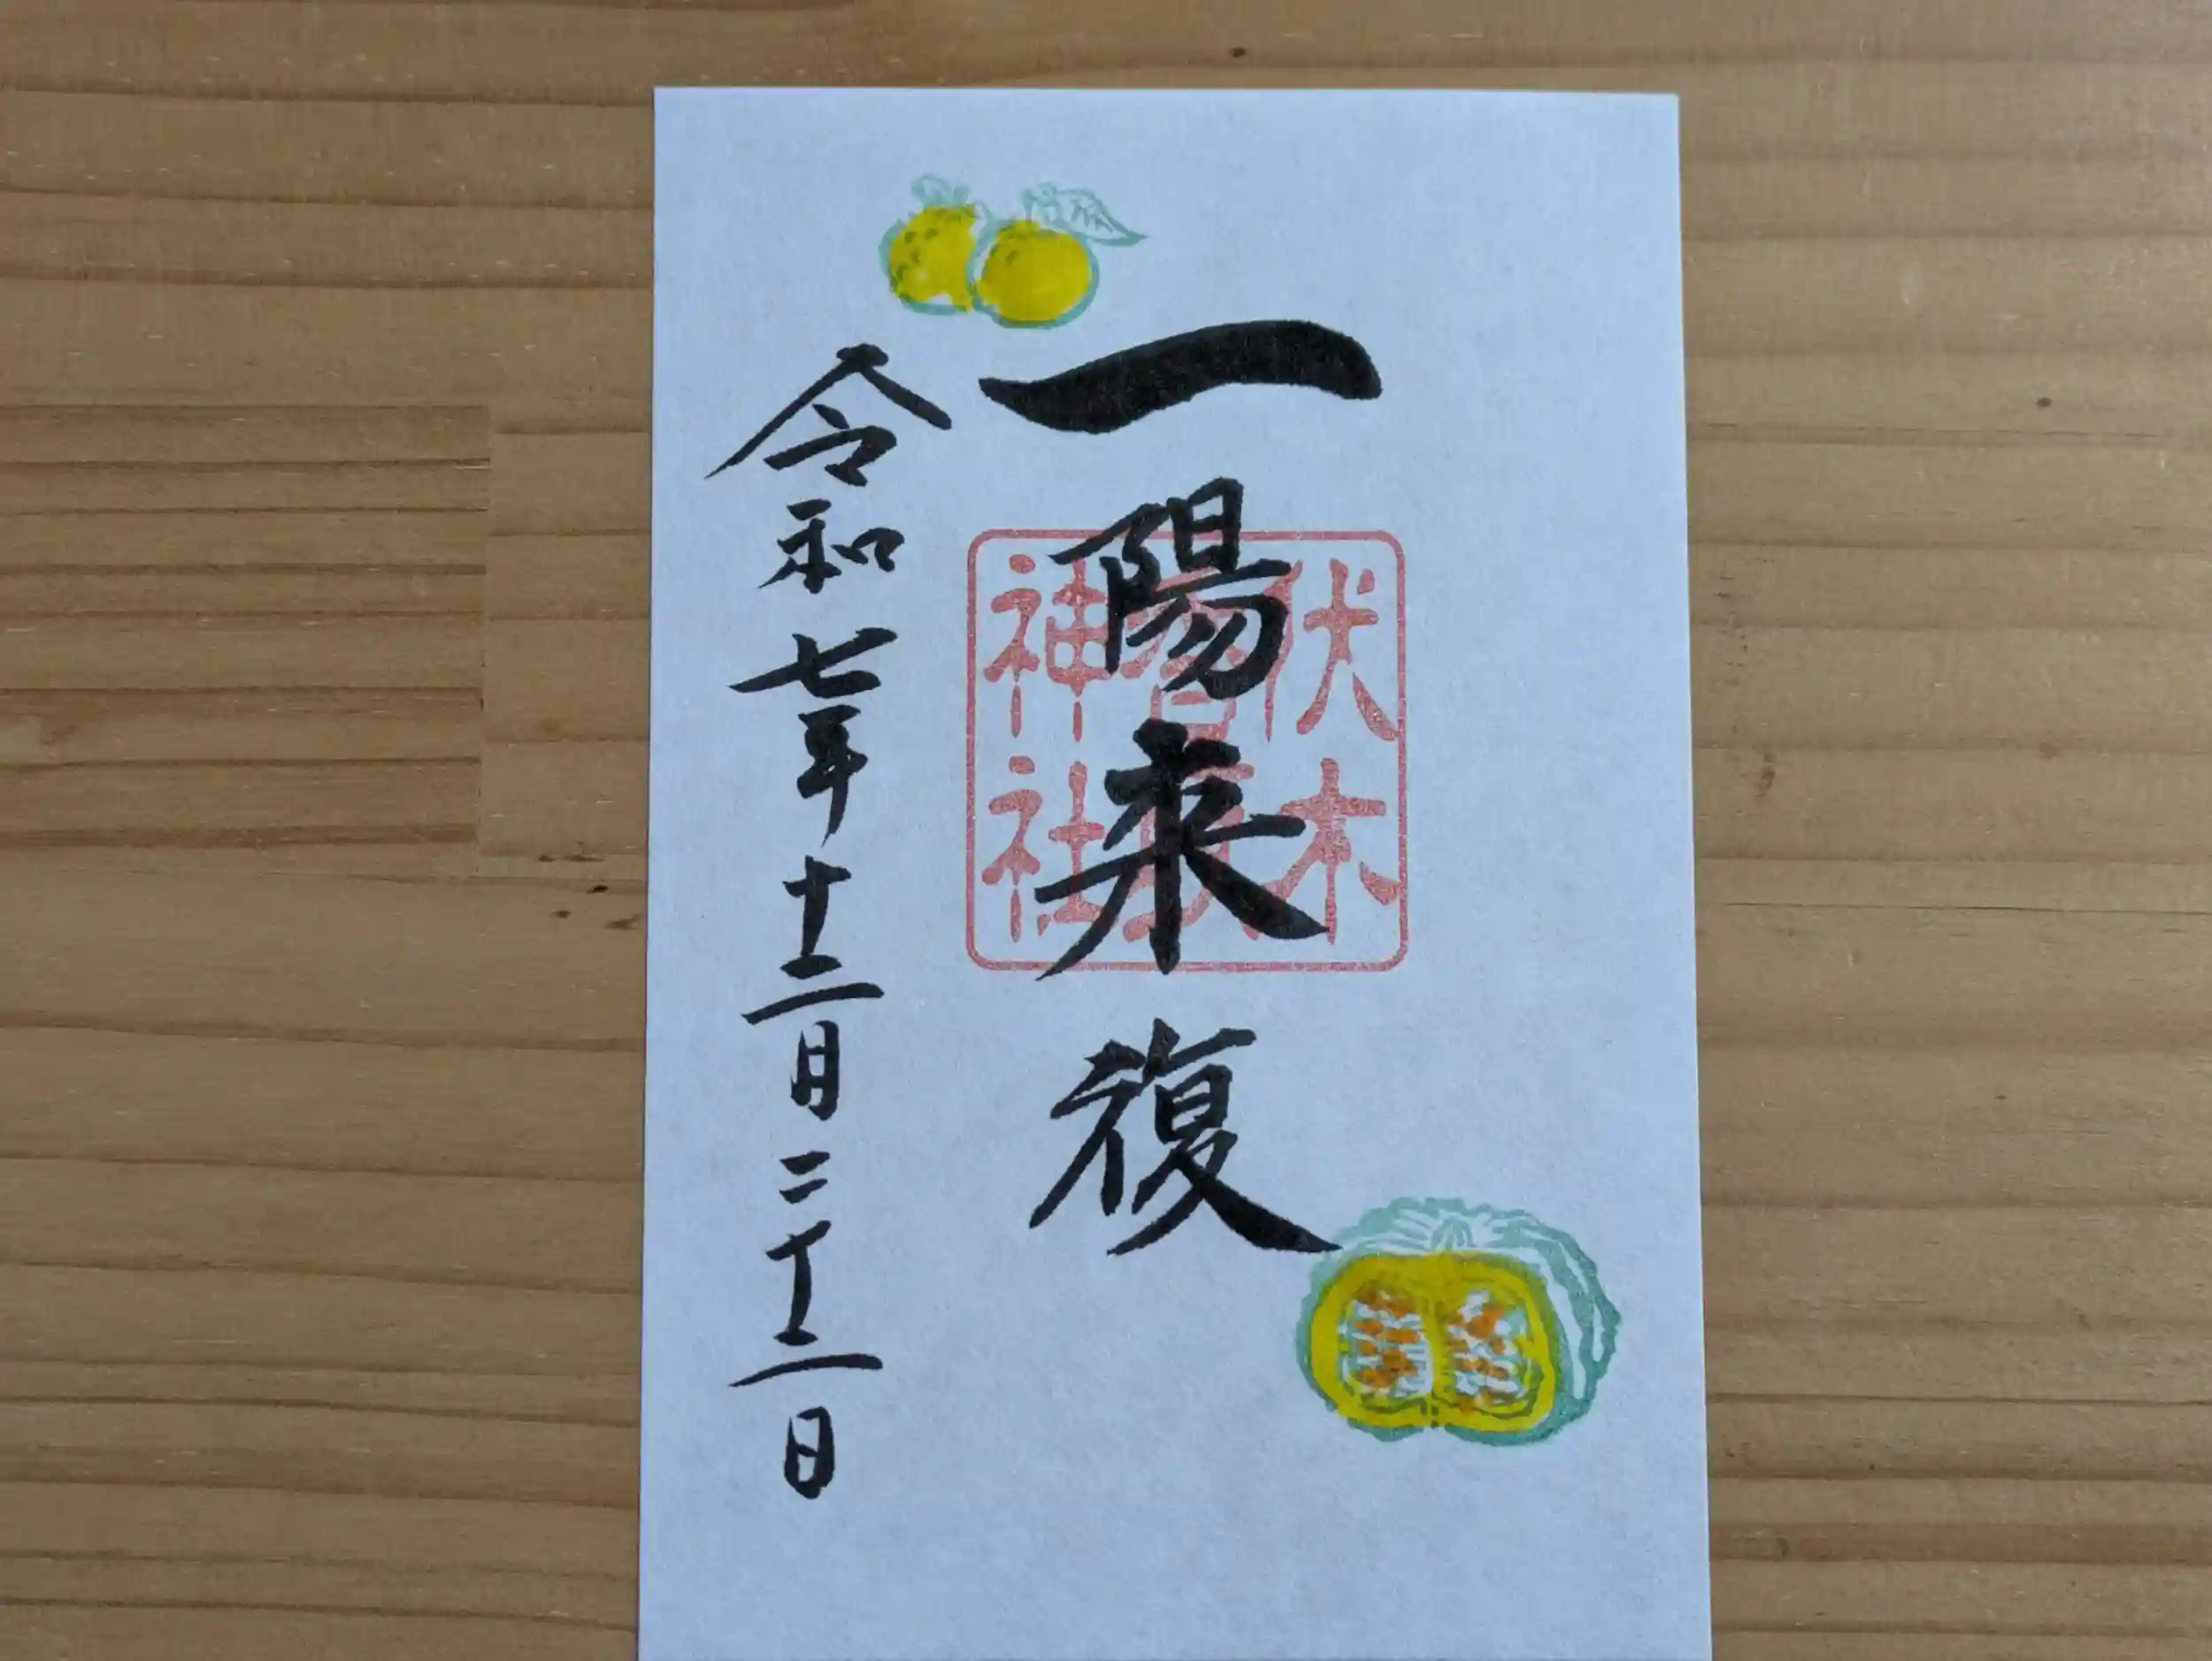 一陽来復
伏木
神社
令和七年十二月二十二日